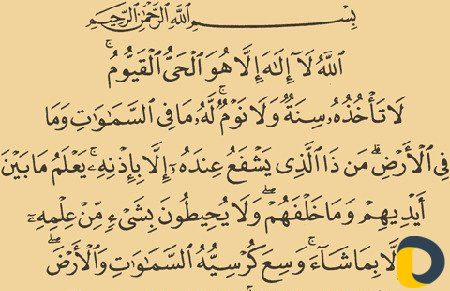 بِسْمِ ٱللَّهِ ٱلرَّحْمَٰنِ ٱلرَّحِيمِ
ٱللَّهُ لَآ إِلَٰهَ إِلَّا هُوَ ٱلْحَىُّ ٱلْقَيُّومُ ۚ
لَا تَأْخُذُهُۥ سِنَةٌ وَلَا نَوْمٌ ۚ لَّهُۥ مَا فِى ٱلسَّمَٰوَٰتِ وَمَا
فِى ٱلْأَرْضِ ۗ مَن ذَا ٱلَّذِى يَشْفَعُ عِندَهُۥٓ إِلَّا بِإِذْنِهِۦ ۚ يَعْلَمُ مَا بَيْنَ
أَيْدِيهِمْ وَمَا خَلْفَهُمْ ۖ وَلَا يُحِيطُونَ بِشَىْءٍ مِّنْ عِلْمِهِۦٓ
إِلَّا بِمَا شَآءَ ۚ وَسِعَ كُرْسِيُّهُ ٱلسَّمَٰوَٰتِ وَٱلْأَرْضَ ۖ